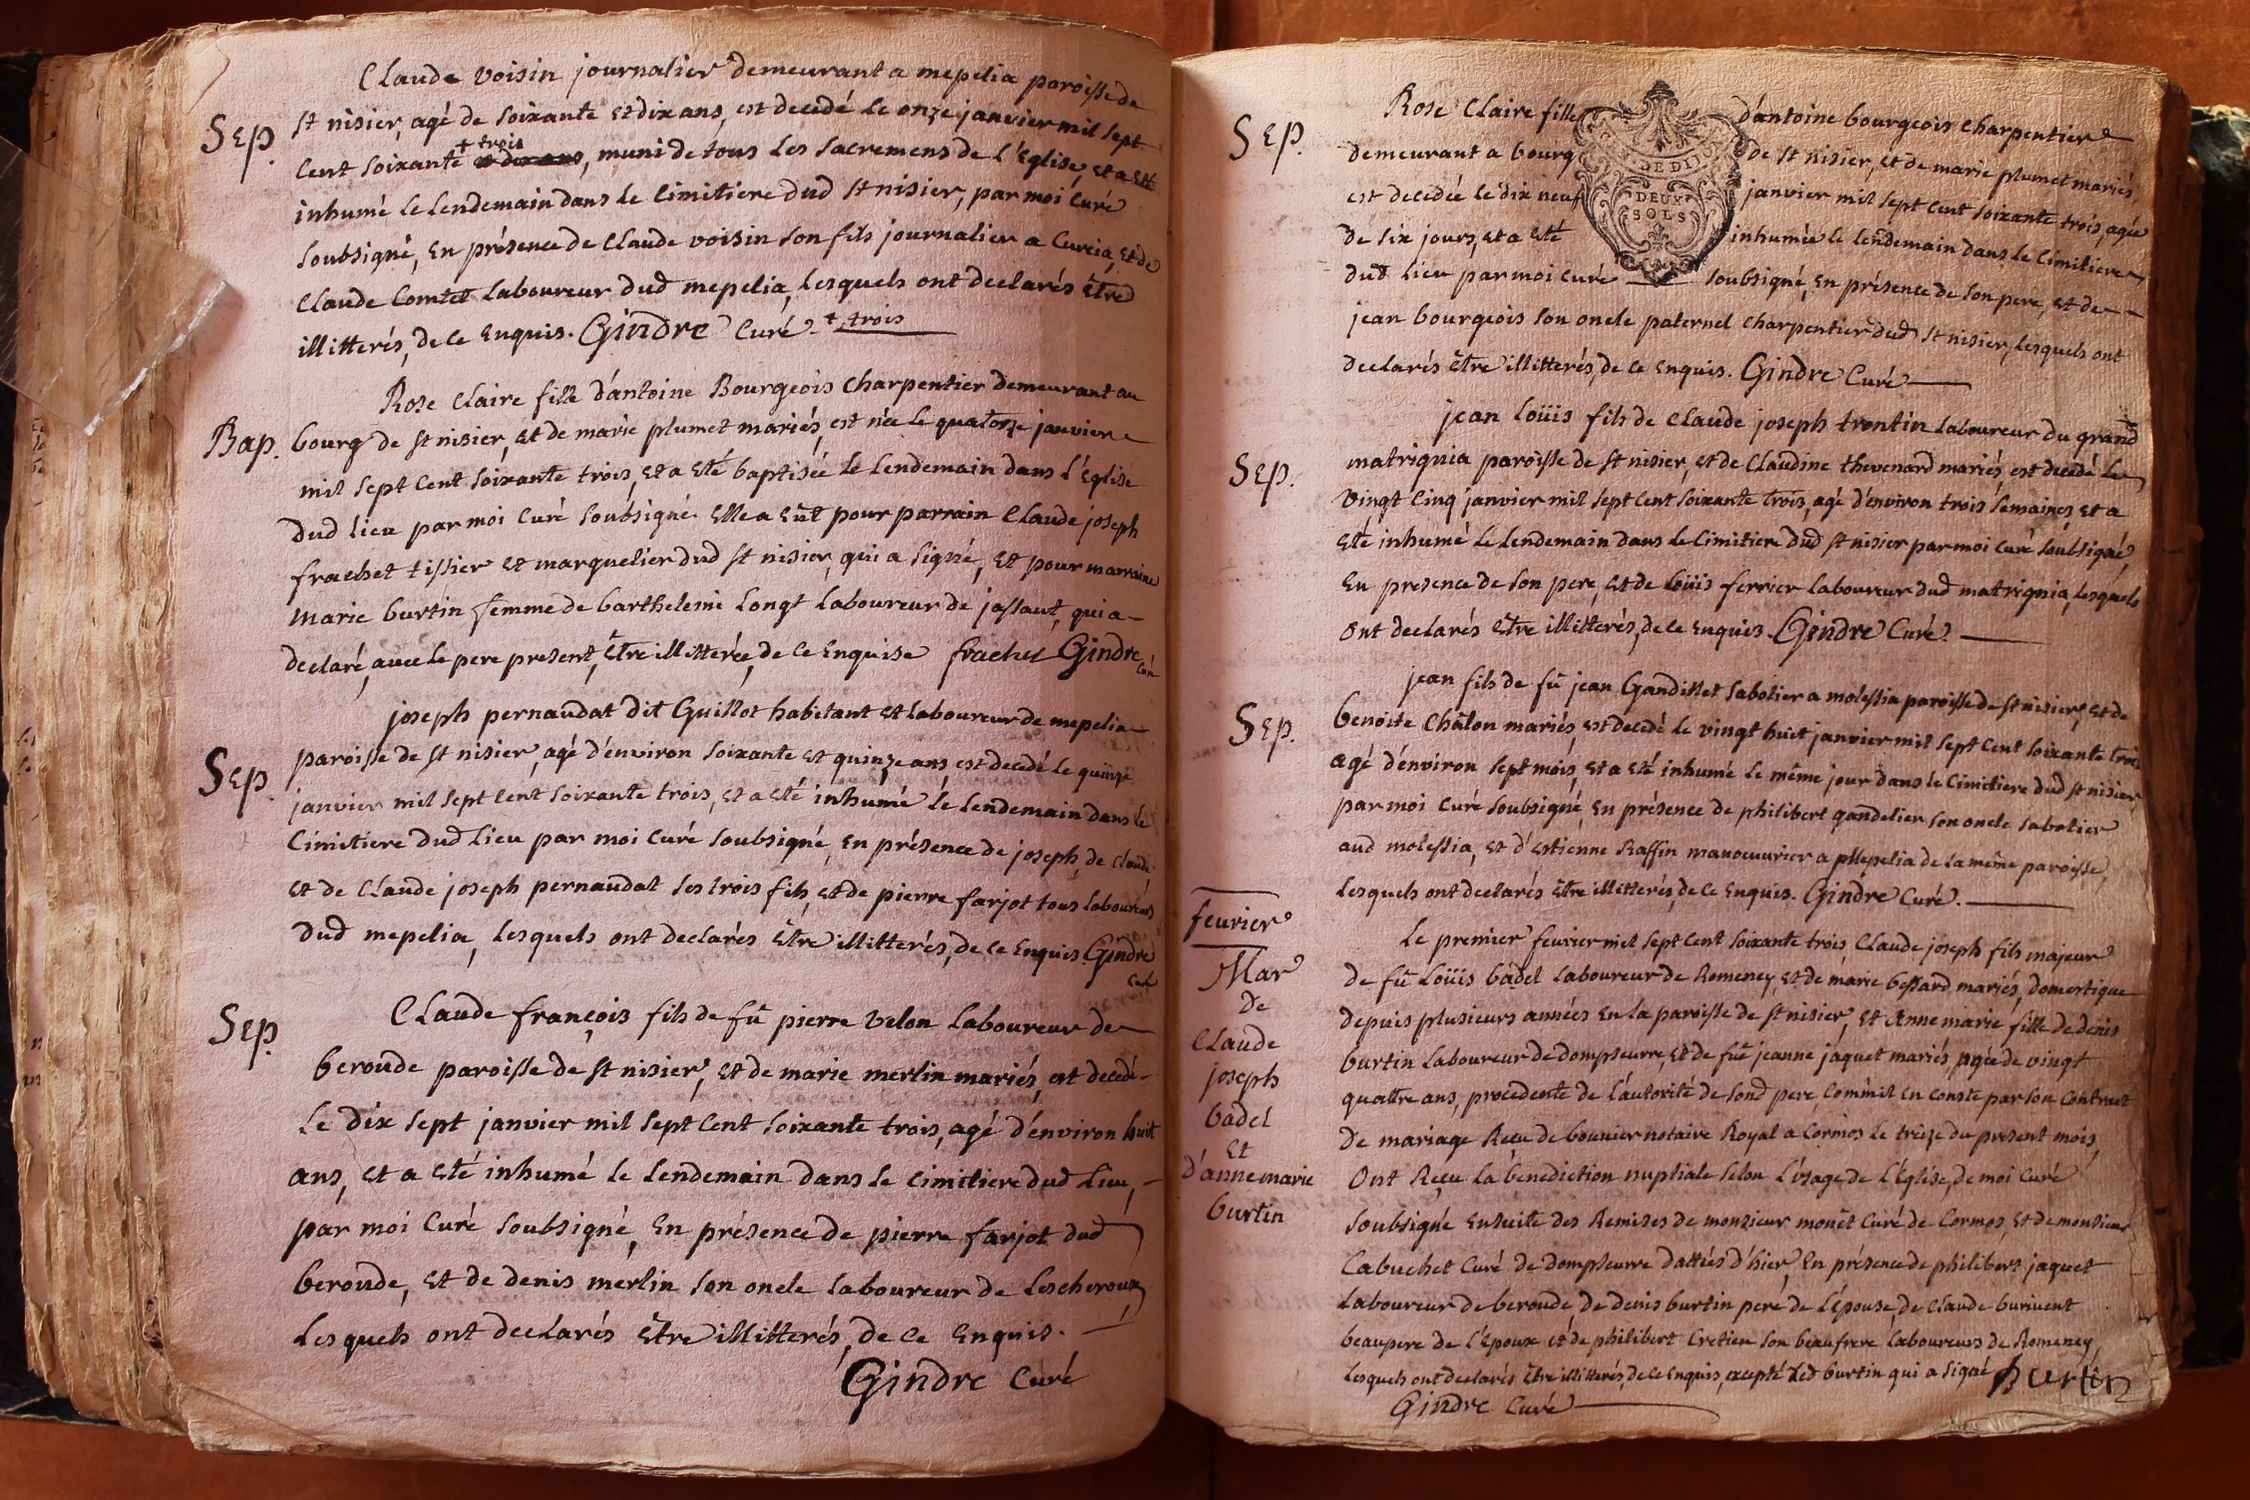 Claude voisin journalier demeurant a mepelia paroisse de
Sep.
st nisier, agé de soixante et dix ans, est decedé le onze janvier mil sept
cent soixante + trois, muni de tous les sacremens de l'Eglise, et a eté
inhumé le lendemain dans le cimitiere dud st nisier, par moi curé
soubsigné, en présence de Claude voisin son fils journalier a Curcia, et de
Claude Comtet laboureur dud mepelia, lesquels ont declarés être
illitterés, de ce enquis. Gindre Curé. + trois
Rose Claire fille d'antoine Bourgeois charpentier demeurant au
Bap.
bourg de st nisier, et de marie plumet mariés, est née le quatorze janvier
mil sept cent soixante trois, et a eté baptisée le lendemain dans l'Eglise
dud lieu par moi curé soubsigné. Elle a eût pour parrain Claude joseph
frachet tissier et marguelier dud st nisier, qui a signé, et pour marraine
marie burtin femme de barthelemi Longt laboureur de jassaut, qui a
declaré, avec le pere present, être illitterée, de ce enquise frachet Gindre
curé
joseph pernaudat dit Guillot habitant et laboureur de mepelia
Sep.
paroisse de st nisier, agé d'environ soixante et quinze ans, est decedé le quinze
janvier mil sept cent soixante trois, et a eté inhumé le lendemain dans le
Cimitiere dud lieu par moi curé soubsigné, en présence de joseph, de Claude
et de Claude joseph pernaudat ses trois fils, et de pierre farjot tous laboureurs
dud mepelia, lesquels ont declarés être illitterés, de ce enquis. Gindre
curé
Sep.
Claude françois fils de fû pierre velon laboureur de
beroude paroisse de st nisier, et de marie merlin mariés, est decedé
le dix sept janvier mil sept cent soixante trois, agé d'environ huit
ans, et a eté inhumé le lendemain dans le cimitiere dud lieu,
par moi curé soubsigné, en présence de pierre farjot dud
beroude, et de denis merlin son oncle laboureur de Lescheroux,
lesquels ont declarés être illitterés, de ce enquis.
Gindre Curé
Rose Claire fille d'antoine bourgeois charpentier
Sep.
demeurant a bourg de st nisier, et de marie plumet mariés,
est decedée le dix neuf janvier mil sept cent soixante trois, agée
DEUX
SOLS
de six jours, et a eté inhumée le lendemain dans le cimitiere
dud lieu par moi curé soubsigné, en présence de son pere, et de
jean bourgeois son oncle paternel charpentier dud st nisier, lesquels ont
declarés être illitterés, de ce enquis. Gindre Curé
jean loüis fils de Claude joseph trontin laboureur du grand
Sep.
matrignia paroisse de st nisier, et de Claudine thevenard mariés, est decedé le
vingt cinq janvier mil sept cent soixante trois, agé d'environ trois semaines, et a
eté inhumé le lendemain dans le cimitiere dud st nisier par moi curé soubsigné,
en presence de son pere, et de loüis ferrier laboureur dud matrignia, lesquels
ont declarés être illitterés, de ce enquis. Gindre Curé.
jean fils de fû jean Gandillet sabotier a molessia paroisse de st nisier, et de
Sep.
benoite Châlon mariés, est decedé le vingt huit janvier mil sept cent soixante trois
agé d'environ sept mois, et a eté inhumé le même jour dans le cimitiere dud st nisier
par moi curé soubsigné, en présence de philibert gandelier son oncle sabotier
aud molessia, et d'estienne Raffin manoeuvrier a mepelia de la même paroisse,
lesquels ont declarés être illitterés, de ce enquis. Gindre Curé.
fevrier
Mar
de
Claude
joseph
badel
et
d'anne marie
burtin
Le premier fevrier mil sept cent soixante trois, Claude joseph fils majeur
de fû Loüis badel laboureur de Romeney, et de marie bessard mariés, domestique
depuis plusieurs années en la paroisse de st nisier, et Anne marie fille de denis
burtin laboureur de dompseurre, et de fuë jeanne jaquet mariés, agée de vingt
quattre ans, procedente de l'autorité de sond pere, comm'il en conste par son contract
de mariage Reçu de bouvier notaire Royal a Cormos le treize du present mois,
Ont Reçu la bénédiction nuptiale selon l'usage de l'Eglise, de moi curé
soubsigné ensuite des Remises de monsieur monêt curé de Cormos, et de monsieur
Cabuchet curé de dompseurre dattées d'hier, en présence de philibert jaquet
laboureur de beroude de denis burtin peré de l'épouse, de Claude burivent
beaupere de l'époux et de philibert Cretien son beaufrere laboureurs de Romeney
lesquels ont declarés être illitterés, de ce enquis, excepté led burtin qui a signé burtin
Gindre Curé